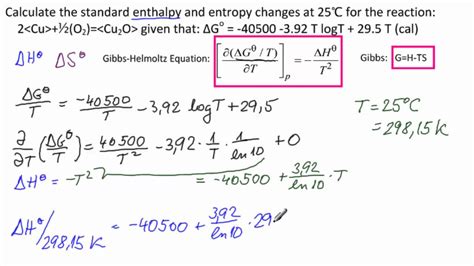 Calculate the standard enthalpy and entropy changes at 25°C for the reaction:
2<Cu>+½(O₂)=<Cu₂O> given that: ΔG° = -40500 -3.92 T logT + 29.5 T (cal)
ΔH^θ ΔS^θ Gibbs-Helmoltz Equation: [∂(ΔG^θ / T)/∂T]_p = -ΔH^θ/T² Gibbs: G=H-TS
ΔG^θ/T = -40500/T - 3,92 log T + 29,5 T = 25°C
= 298,15 K
∂/∂T (ΔG^θ/T) = 40500/T² - 3,92 · 1/T · 1/ln 10 + 0
ΔH^θ = -T² = -40500 + 3,92/ln 10 · T
ΔH^θ/298,15 K = -40500 + 3,92/ln 10 · 29